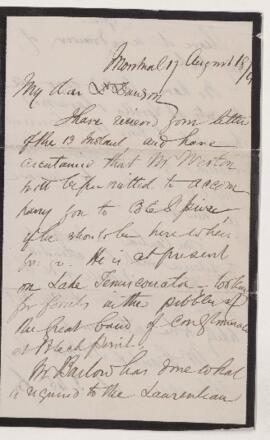 Montreal 17 August 18
My dear Dr Dawson
I have received your letter
of the 13 Instant and have
ascertained that Mr Weston
will be permitted to accom
pany you to
if he should be here to hear
from you. He is at present
on Lake Temiscouata - looking
for fossils in the pebbles of
the great band of conglomerate
at Black
Mr Barlow has done what
is required to the Laurentian